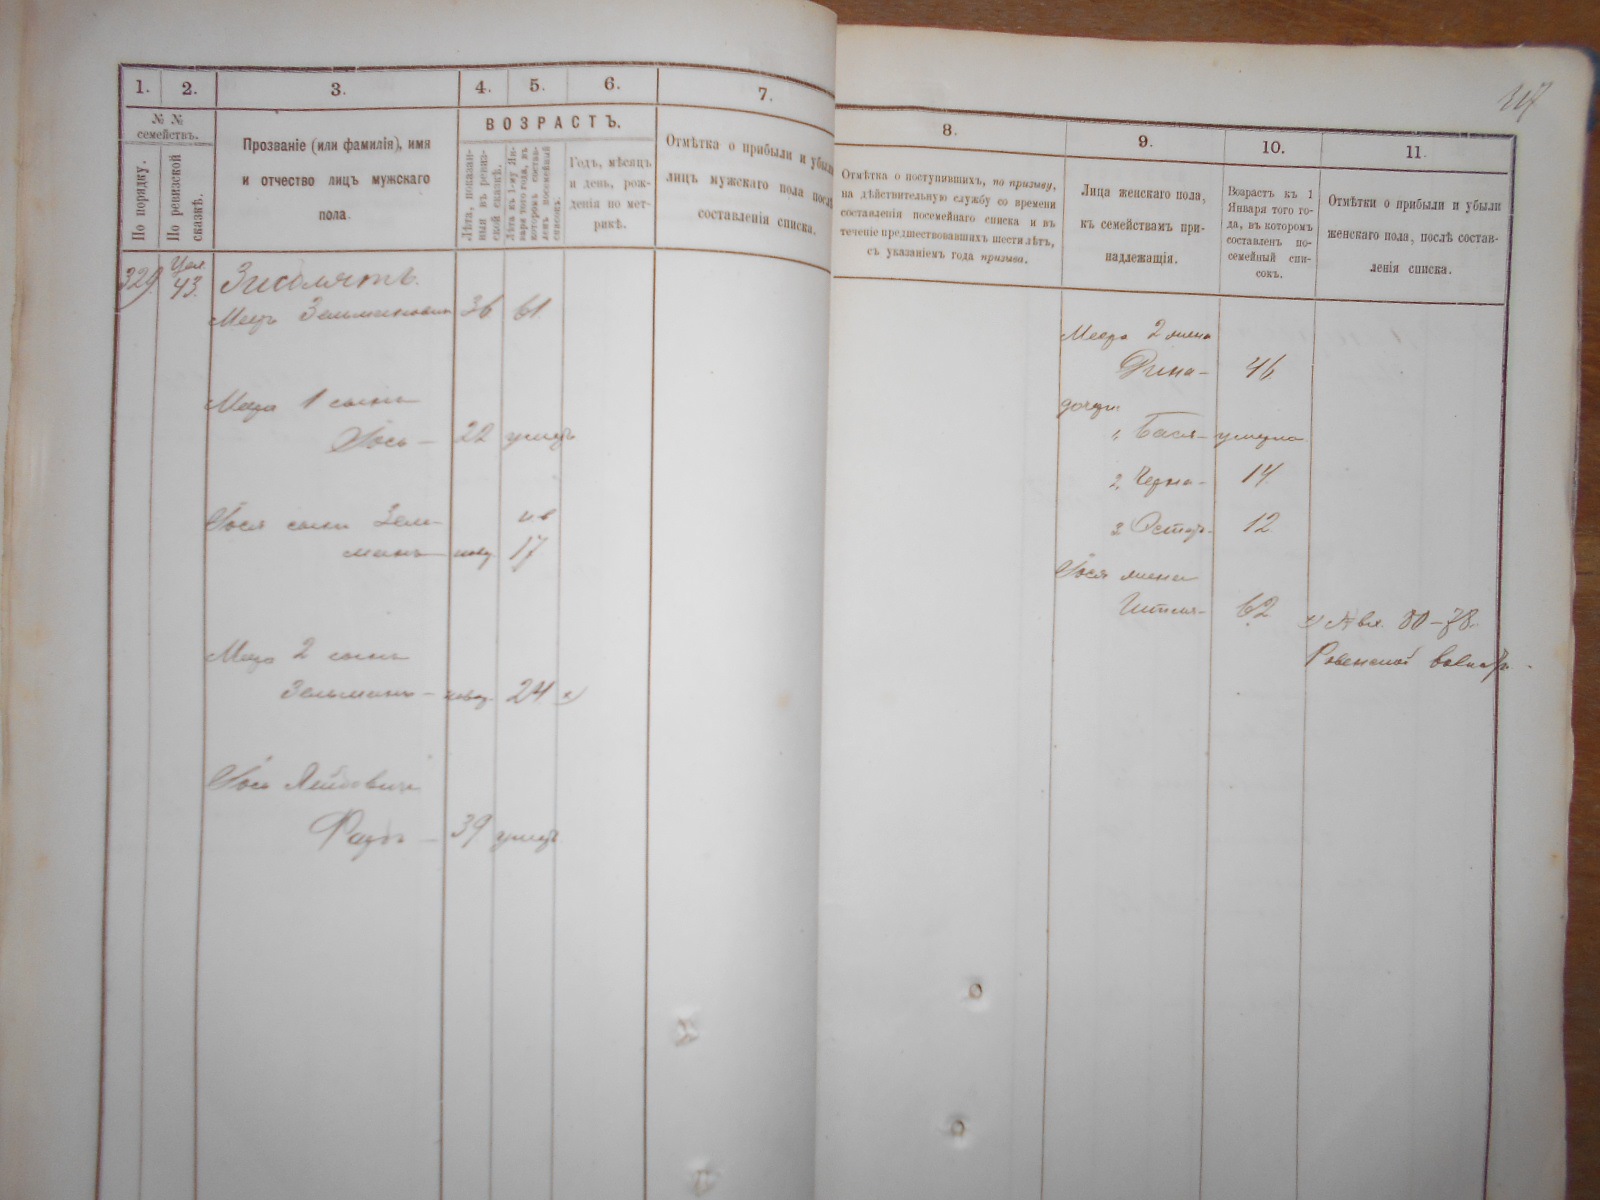 1. 2. 3. 4. 5. 6. 7.
№ № семействъ.
По порядку.
По ревизской сказкѣ.
Прозваніе (или фамилія), имя
и отчество лицъ мужскаго
пола.
ВОЗРАСТЪ.
Лѣта, показанныя въ ревизской сказкѣ.
Лѣта къ 1-му Января того года, въ которомъ составленъ посемейный списокъ.
Годъ, мѣсяцъ
и день, рож-
денія по мет-
рикѣ.
Отмѣтка о прибыли и убыли
лицъ мужскаго пола послѣ
составленія списка.
329. 43.
36 61
Меера 1 сынъ
Іось — 22 умеръ
Іося сынъ Зель-
манъ 17
Меера 2 сынъ
Зельманъ — 24 х)
39 умеръ
8. 9. 10. 11.
Отмѣтка о поступившихъ, по призыву,
на дѣйствительную службу со времени
составленія посемейнаго списка и въ
теченіе предшествовавшихъ шести лѣтъ,
съ указаніемъ года призыва.
Лица женскаго пола,
къ семействамъ при-
надлежащія.
Возрастъ къ 1
Января того го-
да, въ которомъ
составленъ по-
семейный спи-
сокъ.
Отмѣтки о прибыли и убыли
женскаго пола, послѣ состав-
ленія списка.
Меера 2 жена
46
дочери
1, Бася — умерла
2, Черна — 14
3, Эстеръ — 12
Іося жена
62
х) 80 — 78.
Ровенской